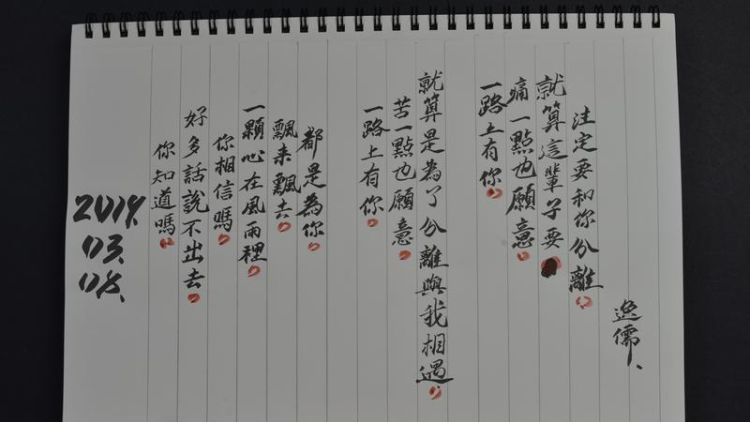 2019.
03.
08.
你知道嗎
好多話說不出去
你相信嗎
一顆心在風雨裡
飄来飄去
都是為你
一路上有你
苦一點也願意
就算是為了分離與我相遇
一路上有你
痛一點也願意
就算這輩子要
注定要和你分離
逸儒、